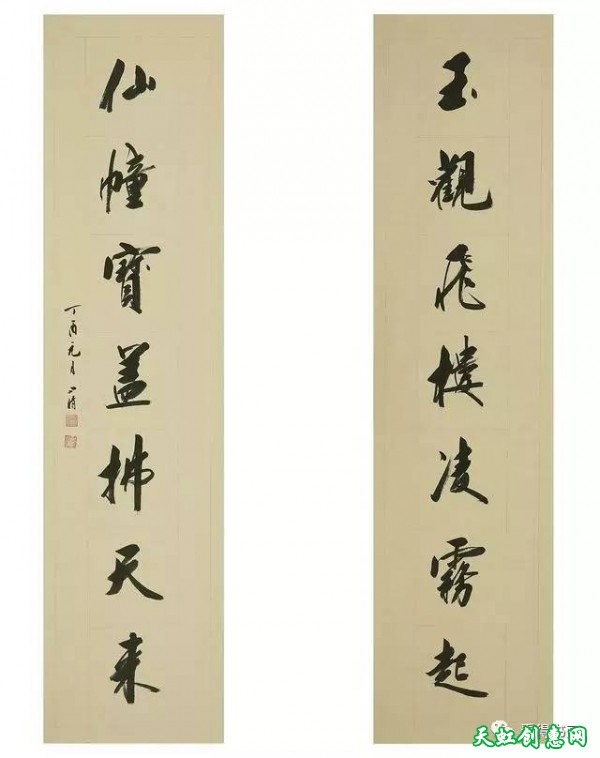 玉觀飛樓凌霧起
仙幢寶盖拂天来
丁酉元月
天虹创惠网